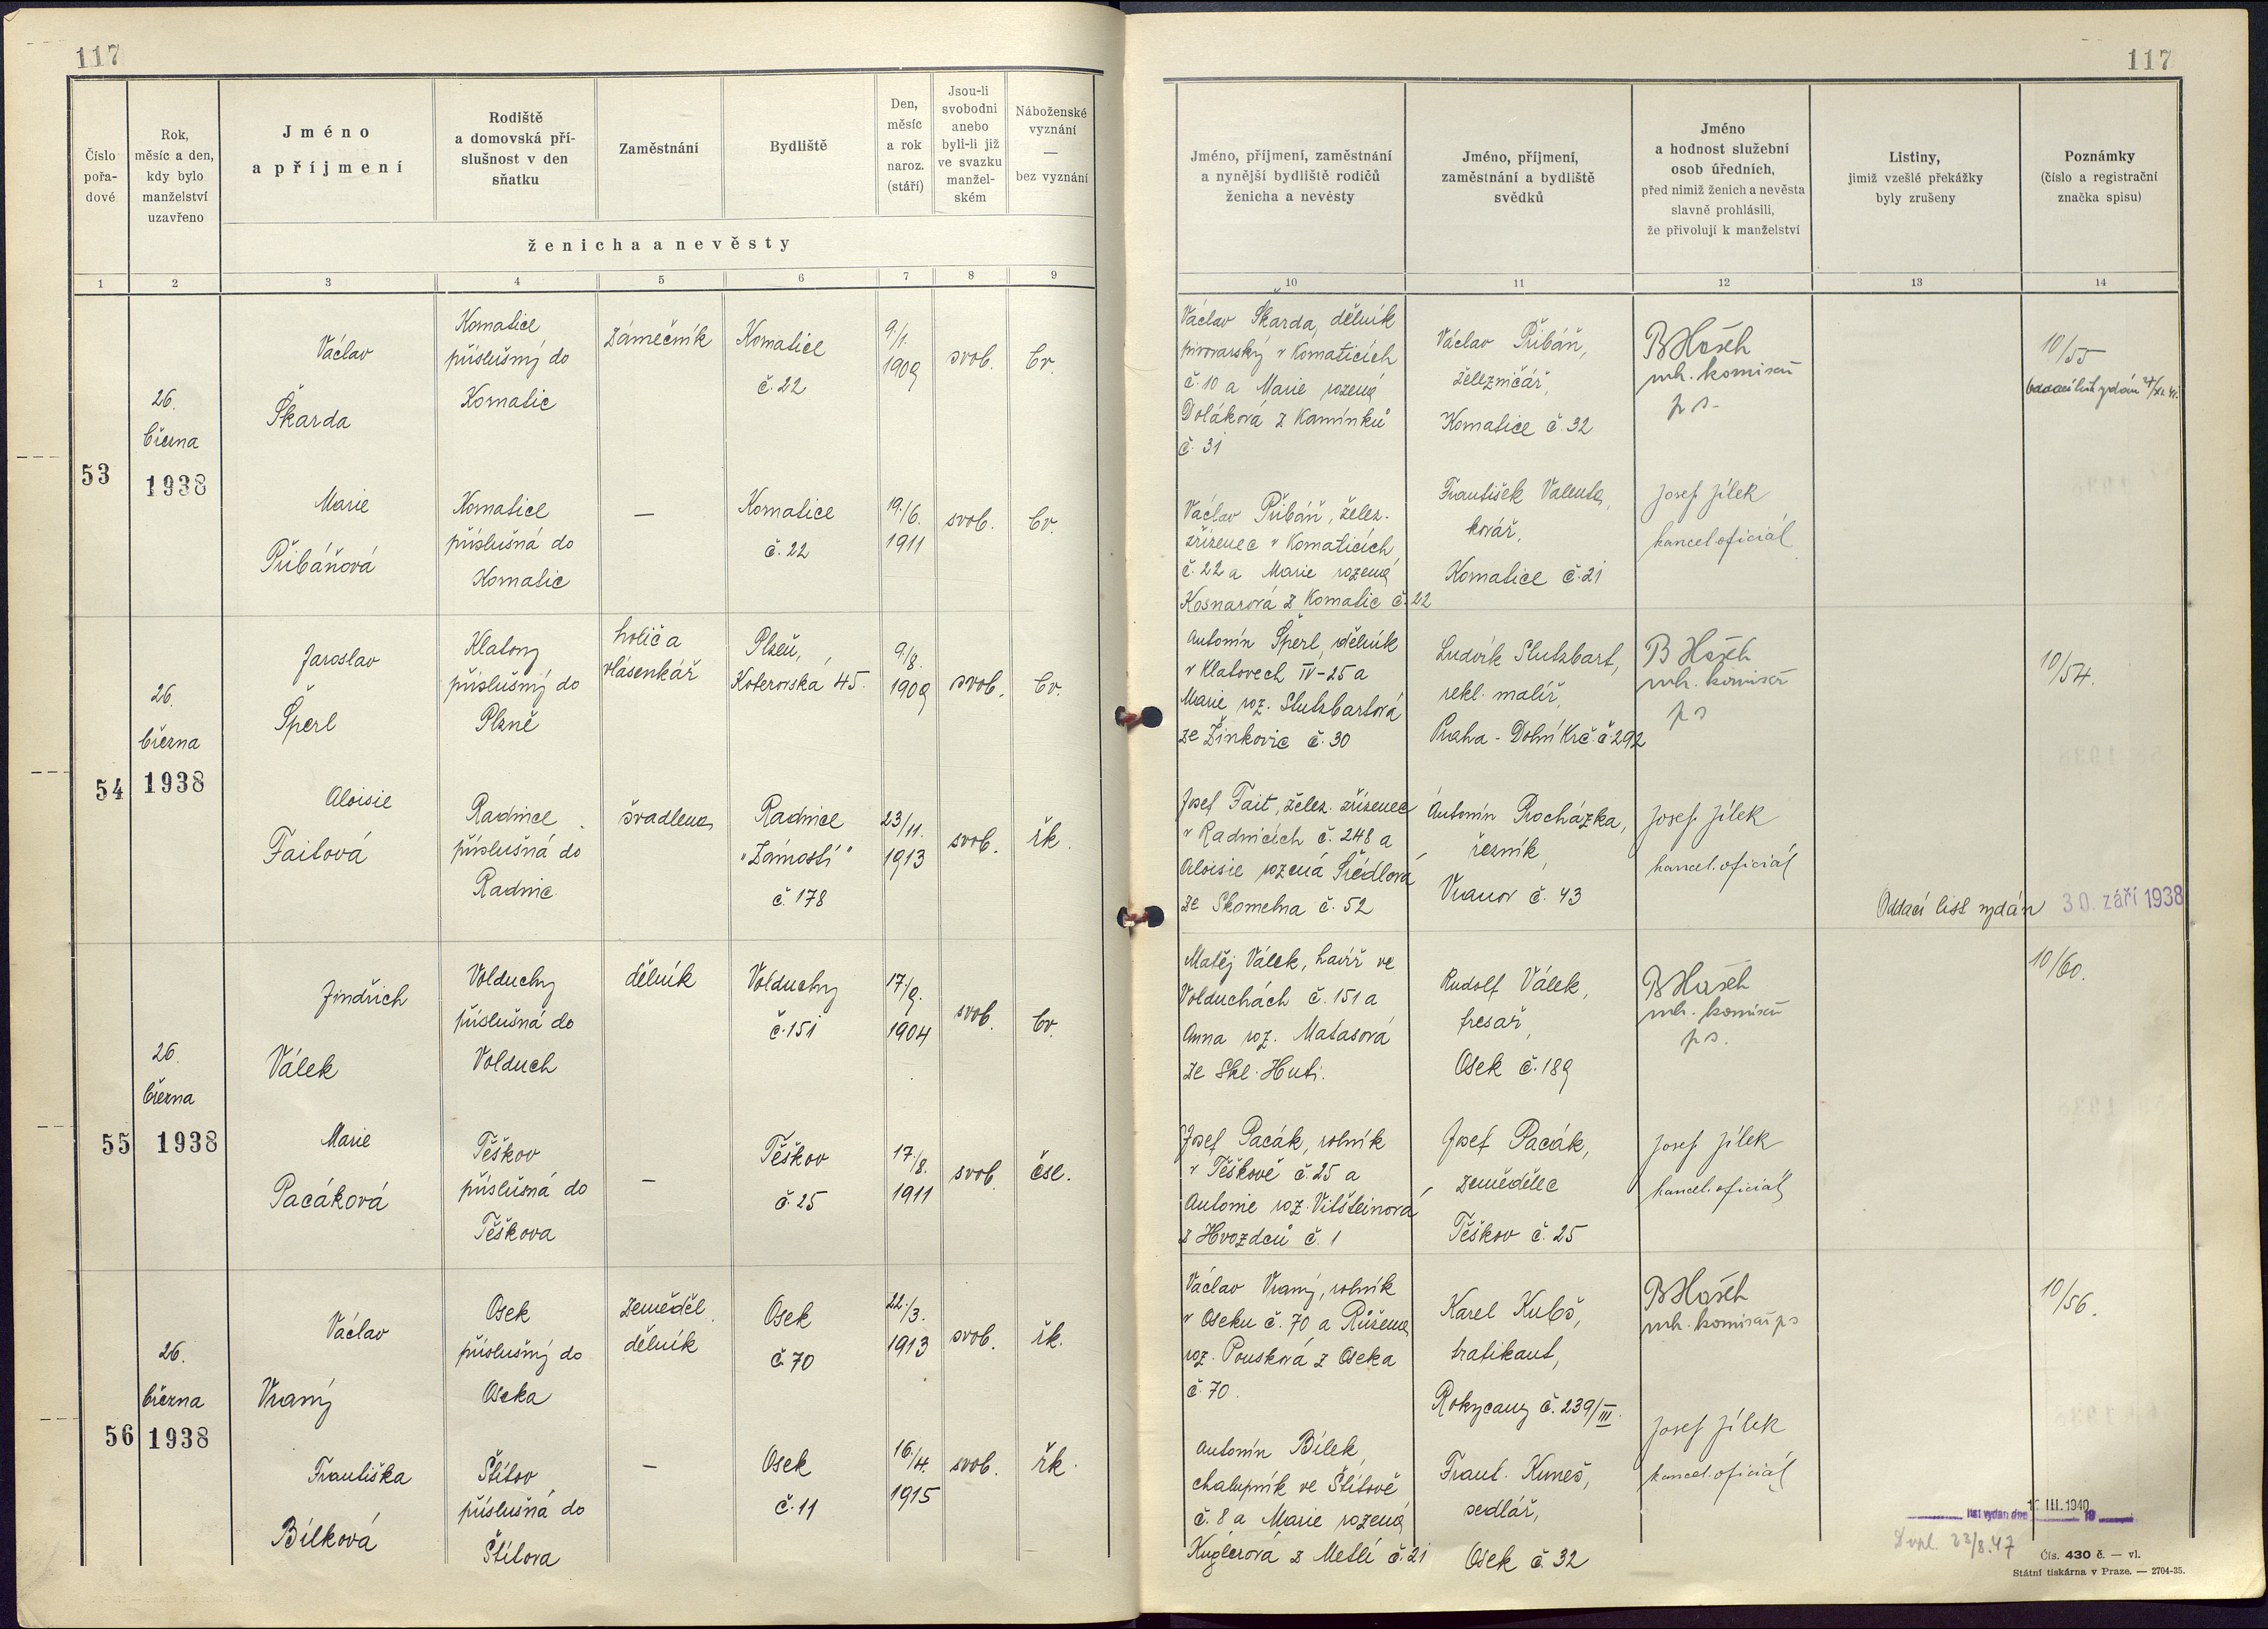 117
117
Číslo
pořa-
dové
Rok,
měsíc a den,
kdy bylo
manželství
uzavřeno
Jméno
a příjmení
Rodiště
a domovská pří-
slušnost v den
sňatku
Zaměstnání
Bydliště
Den,
měsíc
a rok
naroz.
(stáří)
Jsou-li
svobodni
anebo
byli-li již
ve svazku
manžel-
ském
Náboženské
vyznání
—
bez vyznání
ženicha a nevěsty
Jméno, příjmení, zaměstnání
a nynější bydliště rodičů
ženicha a nevěsty
Jméno, příjmení,
zaměstnání a bydliště
svědků
Jméno
a hodnost služební
osob úředních,
před nimiž ženich a nevěsta
slavně prohlásili,
že přivolují k manželství
Listiny,
jimiž vzešlé překážky
byly zrušeny
Poznámky
(číslo a registrační
značka spisu)
1 2 3 4 5 6 7 8 9 10 11 12 13 14
53
26.
března
1938
Václav
Škarda
Komatice
příslušný do
Komatic
zámečník
Komatice
č. 22
9/1.
1909
svob.
bv.
Václav Škarda, dělník
pivovarský v Komaticích
č. 10 a Marie rozená
Doláková z Kamínků
č. 31
Václav Přibáň,
železničář,
Komatice č. 32
B Hašek
p s.
10/55
Oddací list vydán
Marie
Přibáňová
Komatice
příslušná do
Komatic
—
Komatice
č. 22
19./6.
1911
svob.
bv.
Václav Přibáň, želez.
zřízenec v Komaticích
č. 22 a Marie rozená
Kosnarová z Komatic č. 22
František Valenta,
kovář,
Komatice č. 21
Josef Jílek
kancel. oficiál
54
26.
března
1938
Jaroslav
Šperl
Klatovy
příslušný do
Plzně
holič a
vlásenkář
Plzeň,
Koterovská 45.
9./8.
1909
svob.
bv.
Antonín Šperl, dělník
v Klatovech IV-25 a
Marie roz. Stutzbartová
ze Žinkovic č. 30
Ludvík Stutzbart,
rekl. malíř,
Praha - Dolní Krč. č. 292
B Hašek
p s
10/54.
Aloisie
Faitová
Radnice
příslušná do
Radnic
švadlena
Radnice
"Zámostí"
č. 178
23/11.
1913
svob.
řk.
Josef Fait, želez. zřízenec
v Radnicích č. 248 a
Aloisie rozená Šrédlová
ze Skomelna č. 52
Antonín Procházka,
řezník,
Vranov č. 43
Josef Jílek
kancel. oficiál
Oddací list vydán 30. září 1938
55
26.
března
1938
Jindřich
Válek
Volduchy
příslušná do
Volduch
dělník
Volduchy
č. 151
17./9.
1904
svob.
bv.
Matěj Válek, havíř ve
Volduchách č. 151 a
Anna roz. Matasová
ze Skl. Huti.
Rudolf Válek,
fresař,
Osek č. 189
B Hašek
p s.
10/60.
Marie
Pacáková
Těškov
příslušná do
Těškova
—
Těškov
č. 25
17./8.
1911
svob.
čsl.
Josef Pacák, rolník
v Těškově č. 25 a
Antonie roz. Vitšteinová
z Hvozdců č. 1
Josef Pacák,
zemědělec
Těškov č. 25
Josef Jílek
kancel. oficiál
56
26.
března
1938
Václav
Vraný
Osek
příslušný do
Oseka
zeměděl.
dělník
Osek
č. 70
22./3.
1913
svob.
řk.
Václav Vraný, rolník
v Oseku č. 70 a Růžena
roz. Pousková z Oseka
č. 70.
Karel Kubš,
trafikant,
Rokycany č. 239/III.
B Hašek
10/56.
Františka
Bílková
Štítov
příslušná do
Štítova
—
Osek
č. 11
16./4.
1915
svob.
řk.
Antonín Bílek,
chalupník ve Štítově
č. 8 a Marie rozená
Kuglerová z Metlí č. 21
Frant. Kuneš,
sedlář,
Osek č. 32
Josef Jílek
kancel. oficiál
III. 1940
list vydán dne 19
23/8.47
Čís. 430 č. — vl.
Státní tiskárna v Praze. — 2704-35.